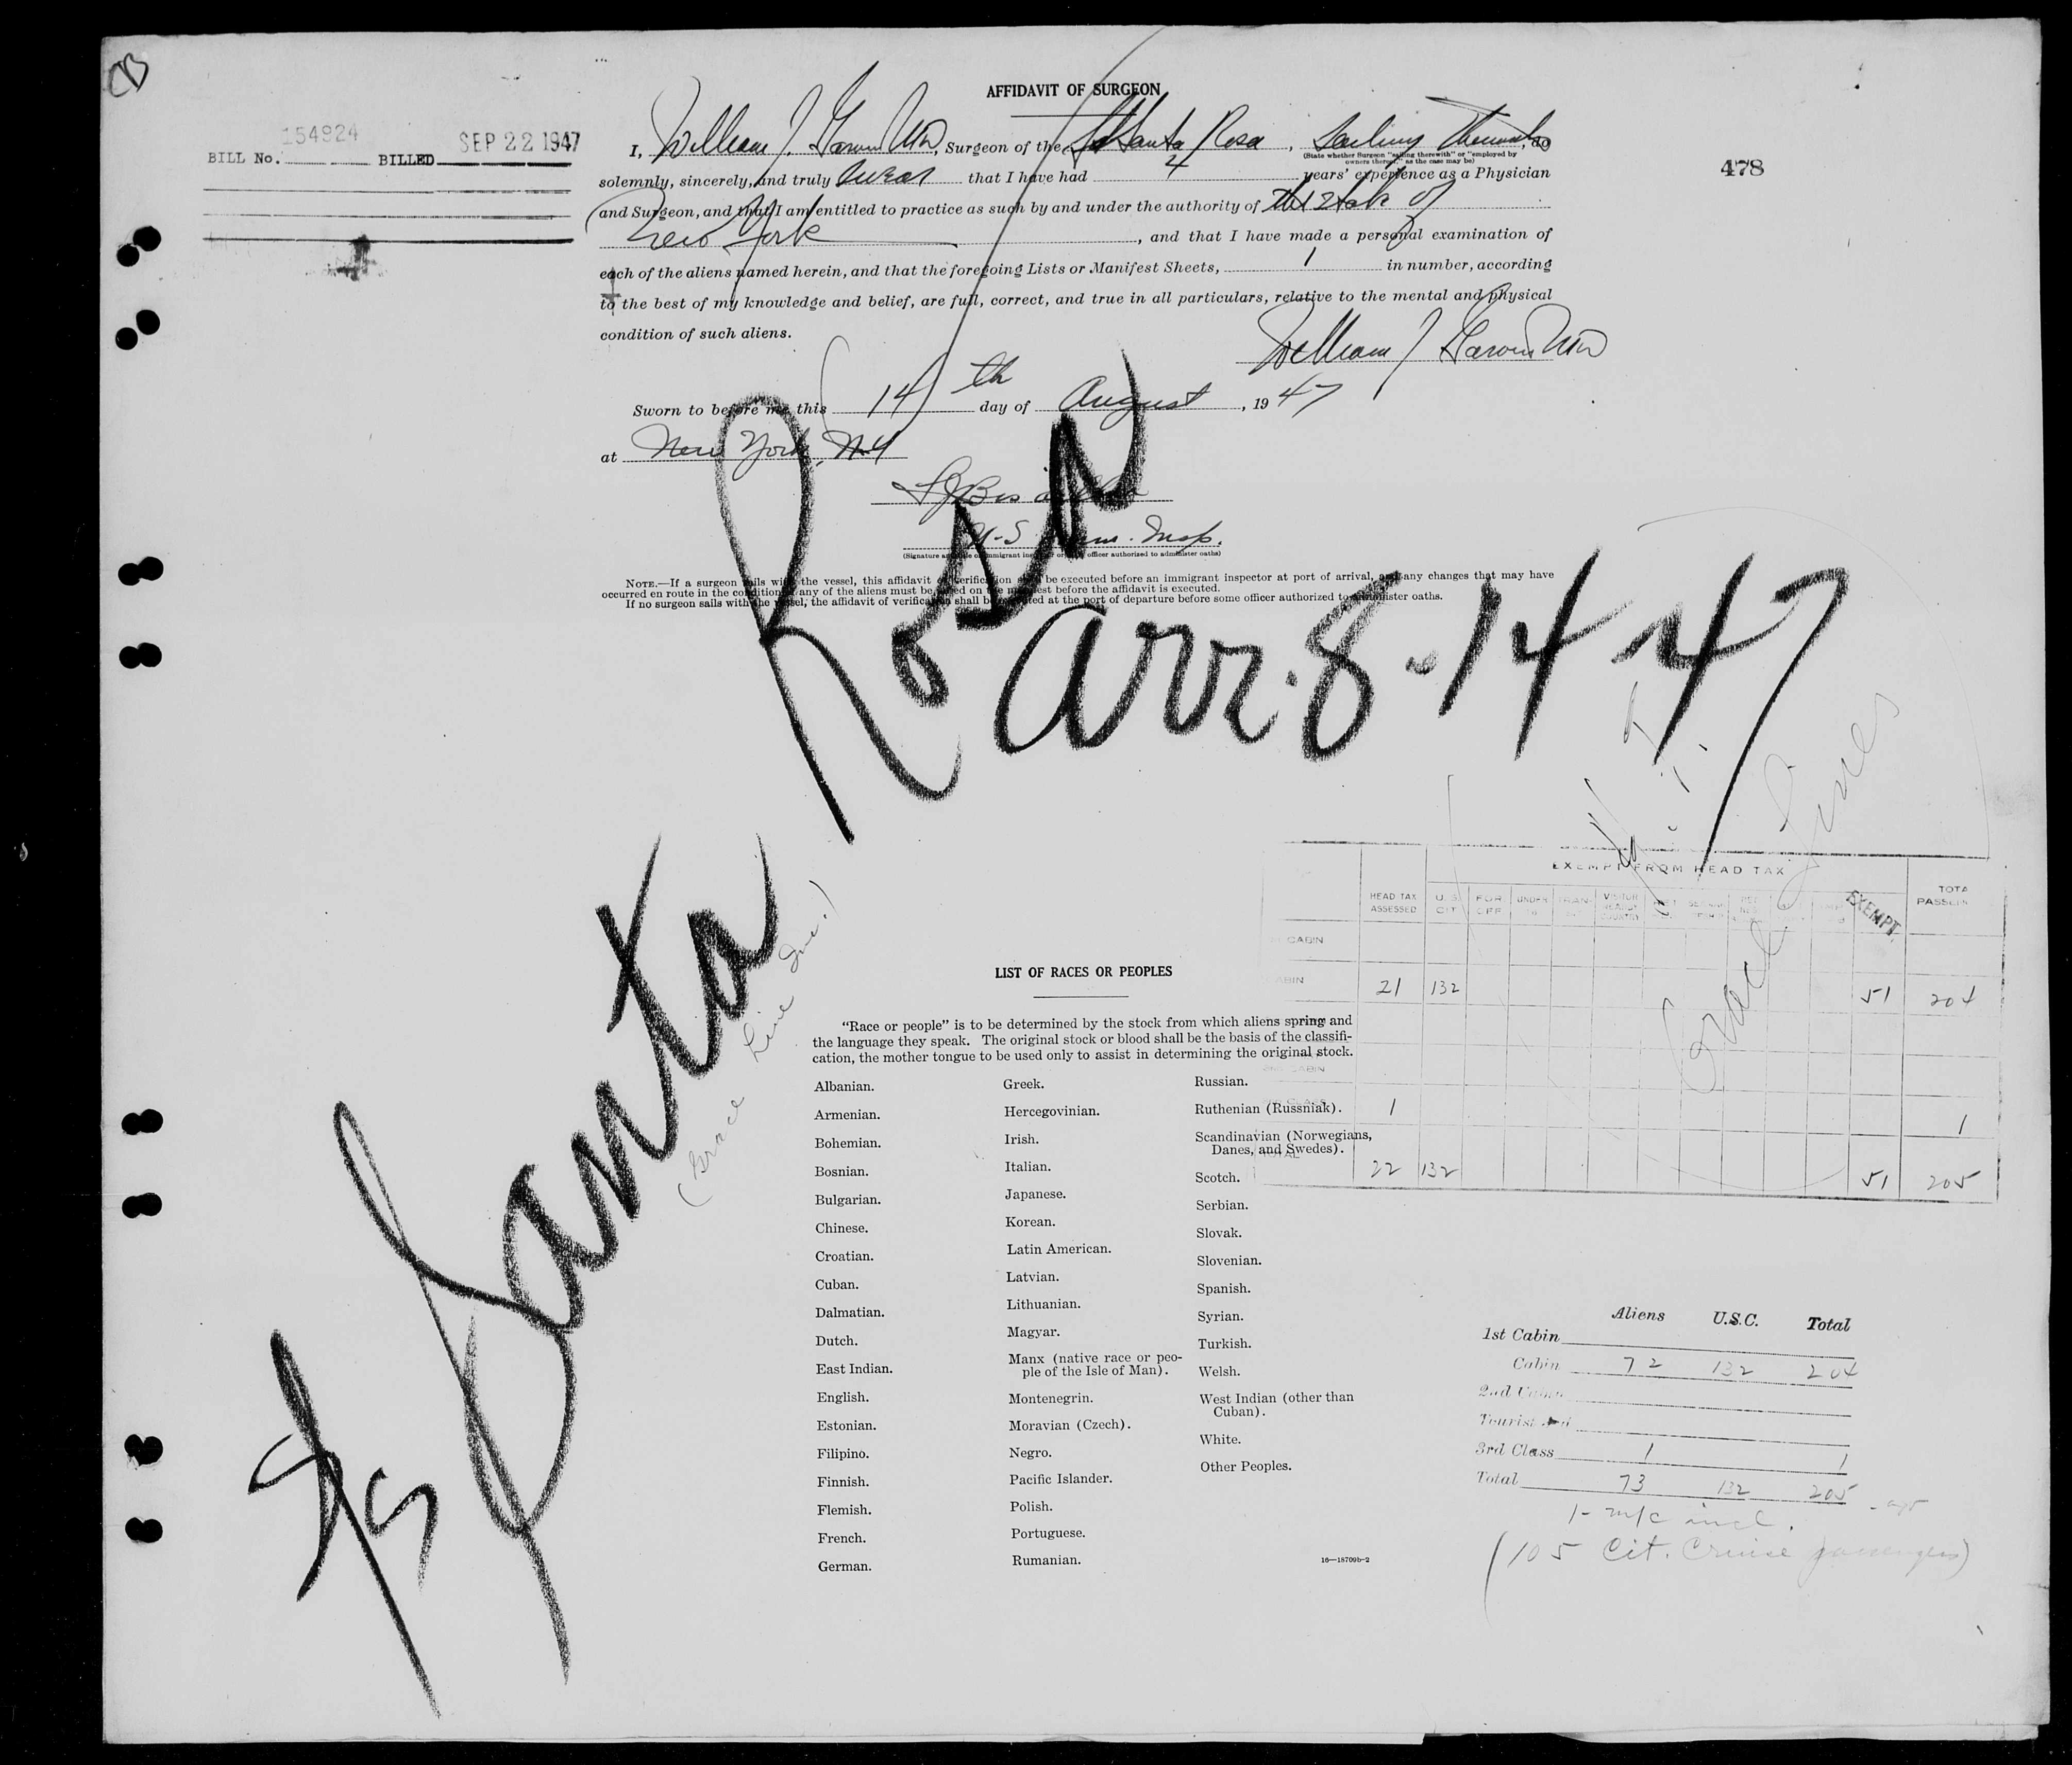 CB
AFFIDAVIT OF SURGEON
154924
SEP 22 1947
BILL No. BILLED
478
I, William J. Garvin MD, Surgeon of the SS Santa Rosa, Sailing Therewith, do
(State whether Surgeon "sailing therewith" or "employed by
owners thereof," as the case may be)
solemnly, sincerely, and truly swear that I have had 4 years' experience as a Physician
and Surgeon, and that I am entitled to practice as such by and under the authority of the State of
New York, and that I have made a personal examination of
each of the aliens named herein, and that the foregoing Lists or Manifest Sheets, 1 in number, according
to the best of my knowledge and belief, are full, correct, and true in all particulars, relative to the mental and physical
condition of such aliens.
William J Garvin MD
Sworn to before me this 14th day of August, 1947
at New York, NY
U-S Imm. Insp.
(Signature and title of immigrant inspector or other officer authorized to administer oaths)
NOTE.—If a surgeon sails with the vessel, this affidavit of verification shall be executed before an immigrant inspector at port of arrival, and any changes that may have
occurred en route in the condition of any of the aliens must be noted on the manifest before the affidavit is executed.
If no surgeon sails with the vessel, the affidavit of verification shall be executed at the port of departure before some officer authorized to administer oaths.
SS Santa Rosa
arr. 8-14-47
(Grace Line Inc.)
Grace Lines
EXEMPT FROM HEAD TAX
HEAD TAX ASSESSED U.S. CIT FOR OFF UNDER 16 TRAN EXEMPT. TOTA PASSEN
CABIN
CABIN 21 132 51 204
1 1
22 132 51 205
LIST OF RACES OR PEOPLES
"Race or people" is to be determined by the stock from which aliens spring and
the language they speak. The original stock or blood shall be the basis of the classifi-
cation, the mother tongue to be used only to assist in determining the original stock.
Albanian.
Armenian.
Bohemian.
Bosnian.
Bulgarian.
Chinese.
Croatian.
Cuban.
Dalmatian.
Dutch.
East Indian.
English.
Estonian.
Filipino.
Finnish.
Flemish.
French.
German.
Greek.
Hercegovinian.
Irish.
Italian.
Japanese.
Korean.
Latin American.
Latvian.
Lithuanian.
Magyar.
Manx (native race or peo-
ple of the Isle of Man).
Montenegrin.
Moravian (Czech).
Negro.
Pacific Islander.
Polish.
Portuguese.
Rumanian.
Russian.
Ruthenian (Russniak).
Scandinavian (Norwegians,
Danes, and Swedes).
Scotch.
Serbian.
Slovak.
Slovenian.
Spanish.
Syrian.
Turkish.
Welsh.
West Indian (other than
Cuban).
White.
Other Peoples.
16—18709b-2
Aliens U.S.C. Total
1st Cabin
Cabin 72 132 204
2nd Cabin
Tourist
3rd Class 1 1
Total 73 132 205
1- m/c incl.
(105 Cit. Cruise passengers)